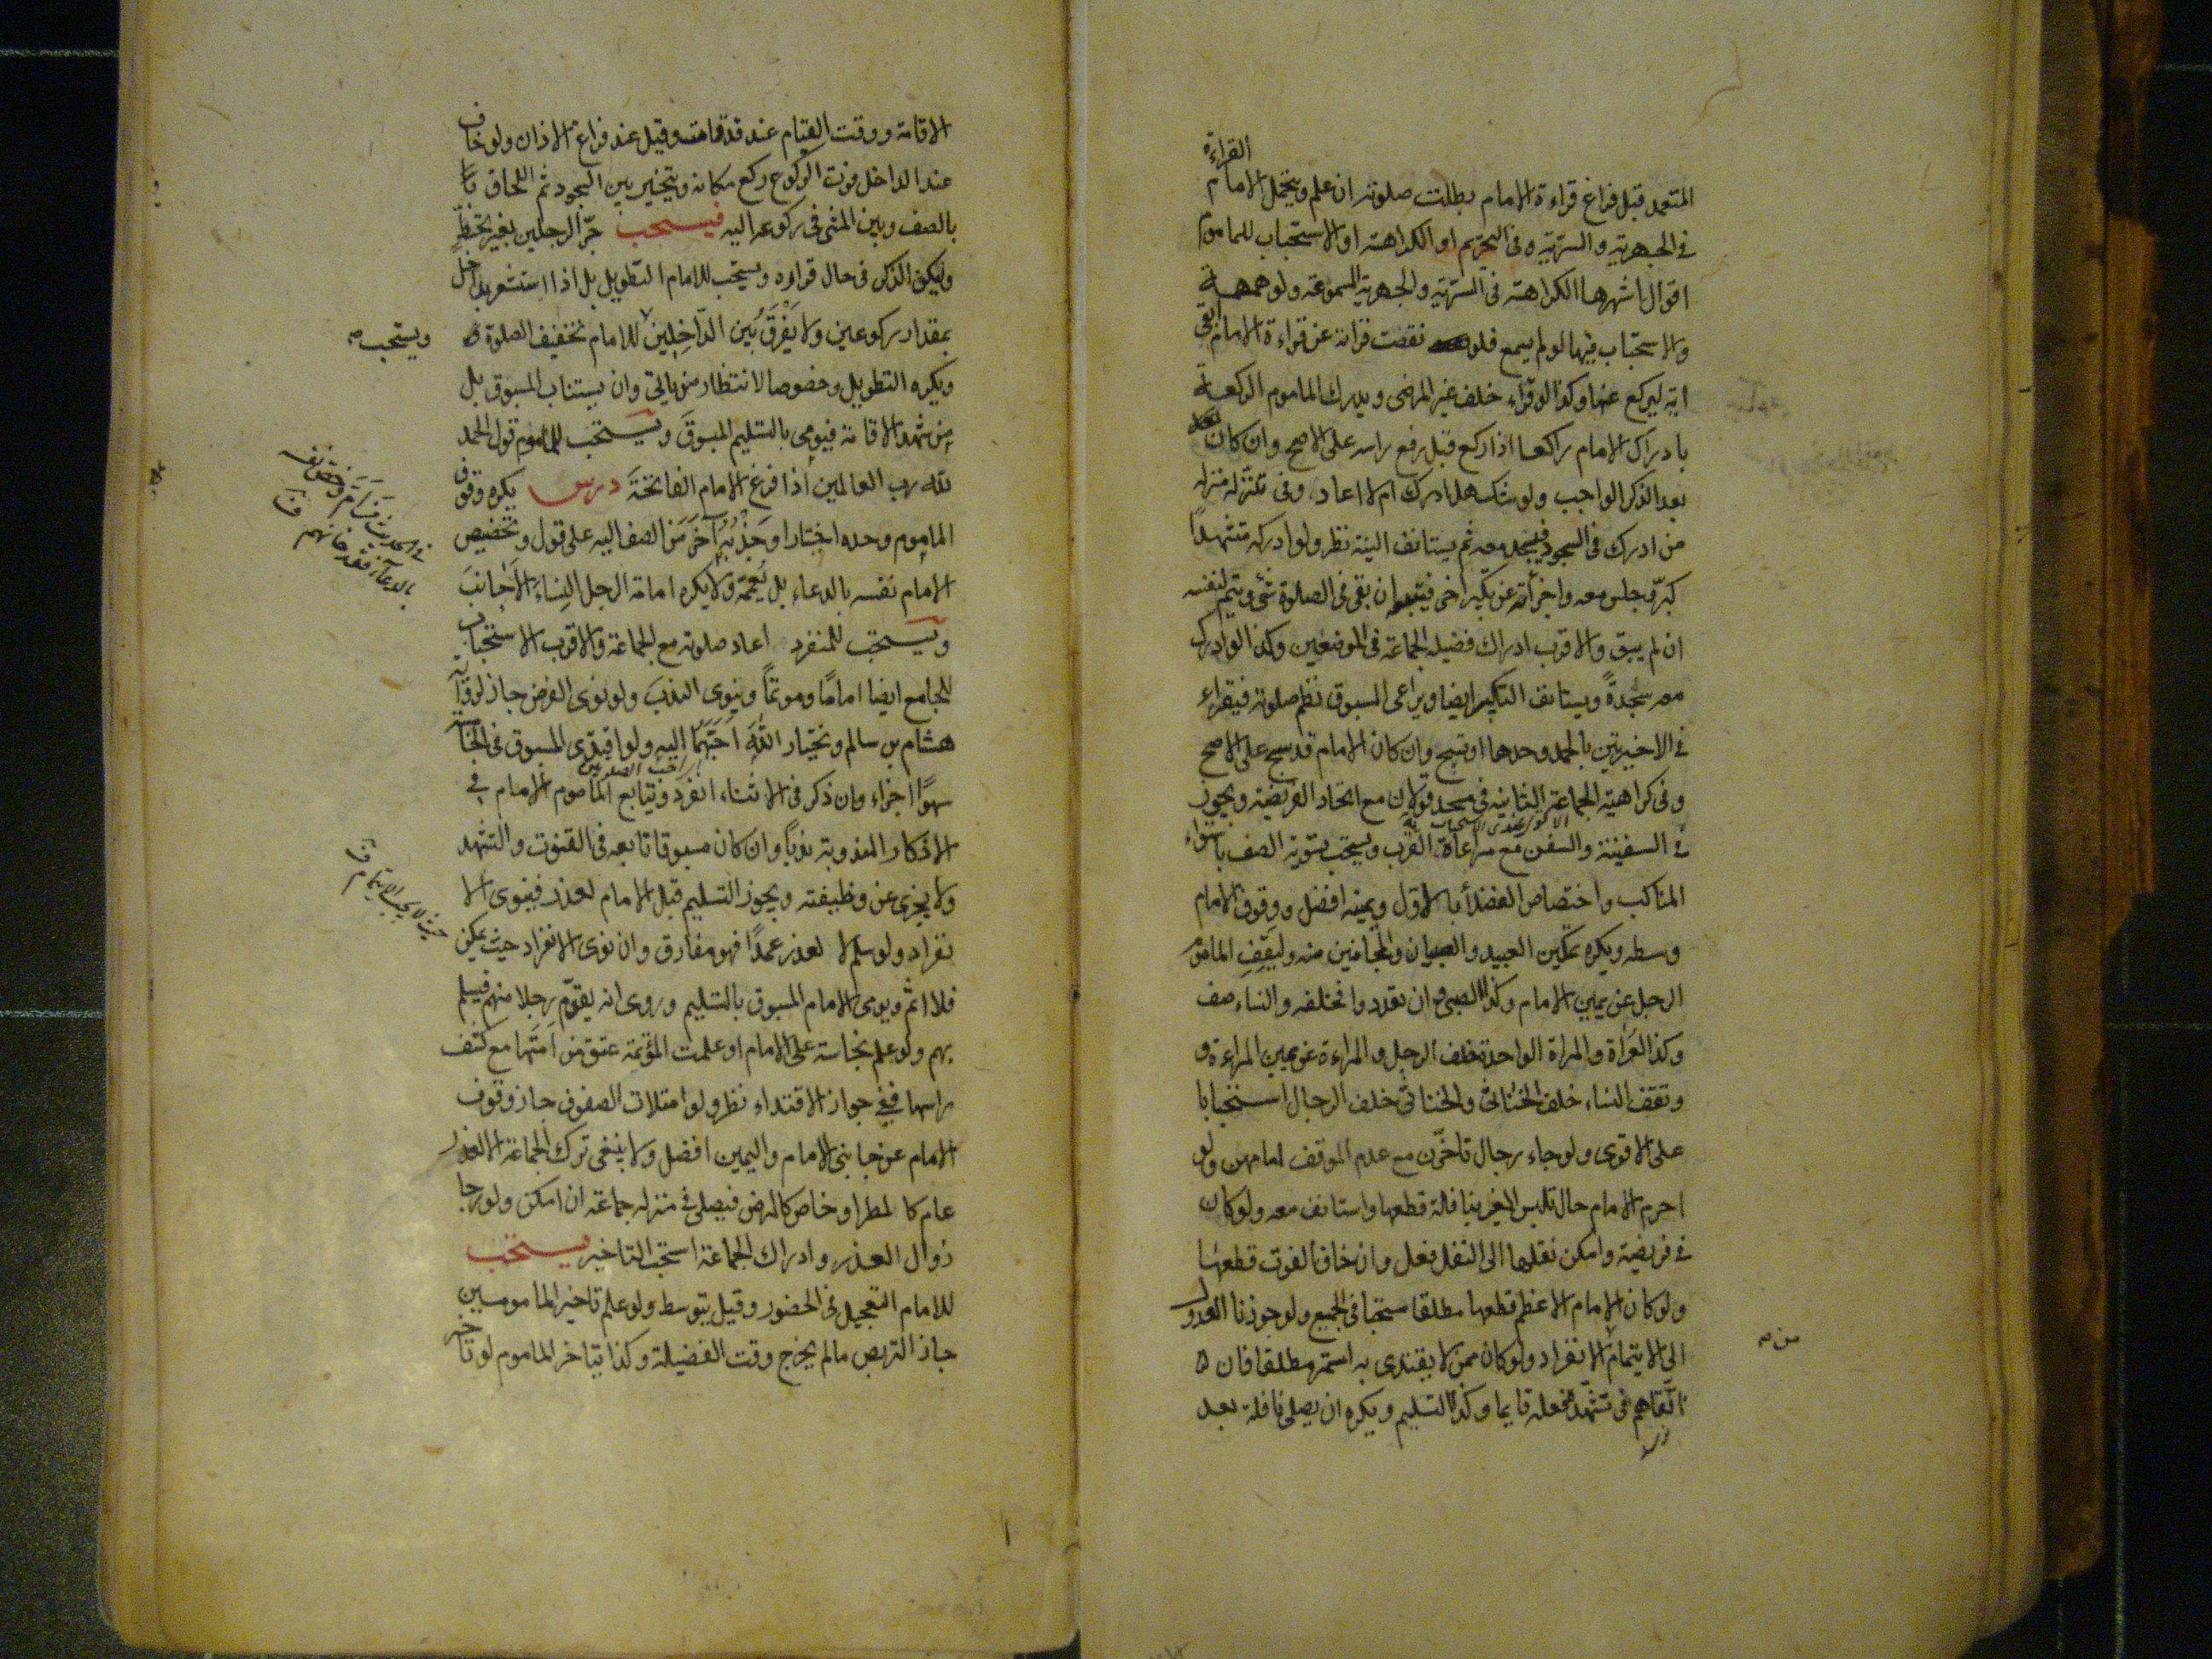 القراءة
المتعمد قبل فراغ قراءة الامام بطلت صلوته ان علم ويتحمل الامام
في الجهرية والسرية وفي التحريم او الكراهة او الاستحباب للماموم
اقوال اشهرها الكراهة في السرية والجهرية المسموعة ولو همهمة
والاستحباب فيها لو لم يسمع فلو نقصت قراته عن قراءة الامام ابقى
اية ليركع عنها وكذا لو قراء خلف غير المرضى ويدرك الماموم الركعة
بادراك الامام راكعا اذا ركع قبل رفع راسه على الاصح وان كان بعد
بعد الذكر الواجب ولو شك هل ادرك ام لا اعاد وفى تنزله منزلة
من ادركه في السجود فيسجد معه ثم يستانف النية نظر ولو ادركه متشهدا
كبر وجلس معه واجزأته عن تكبير اخر فيتبعه ان بقى في الصلوة شئ ويتم لنفسه
ان لم يبق والاقرب ادراك فضيلة الجماعة في الموضعين وكذا لو ادرك
معه سجدة ويستانف التكبير ايضا ويراعى المسبوق نظم صلوته فيقراء
في الاخيرتين بالحمد وحدها او تسبح وان كان الامام قد سبح على الاصح
وفى كراهية الجماعة الثانية في مسجد قولان مع اتحاد الفريضة ويجوز
في السفينة والسفن مع مراعاة القرب ويستحب تسوية الصف باستواء
المناكب واختصاص الفضلأ بالاول ويمينه افضل ووقوف الامام
وسطه ويكره تمكين العبيد والصبيان والمجانين منه وليقف الماموم
الرجل عن يمين الامام وكذا الصبى وان تعددوا فخلفه والنساء صف
وكذا العراة والمراة الواحدة خلف الرجل والمراءة عن يمين المراءة و
وتقف النساء خلف الخناثى والخناثى خلف الرجال استحبابا
على الاقوى ولو جاء رجال تاخرن مع عدم الموقف امامهن ولو
احرم الامام حال تلبس الغير بنافلة قطعها واستانف معه ولو كان
في فريضة وامكن نقلها الى النفل فعل وان خاف الفوت قطعها
ولو كان الامام الاعظم قطعها مطلقا مستحبا في الجميع ولو جوزنا العدول
الى الايتمام الانفراد ولو كان ممن لا يقتدى به استمر مطلقا فان
من صح
اتقاهم في تشهد فعله قايما وكذا التسليم ويكره ان يصلى نافلة بعد
الاقامة ووقت القيام عند قد قامت وقيل عند فراغ الاذان ولو خاف
عند الداخل فوت الركوع ركع مكانه ويتخير بين السجود ثم اللحاق
بالصف وبين المشى في ركوعه اليه فيستحب جر الرجلين بغير تخط
وليكن الذكر في حال قراره ويستحب للامام التطويل بل اذا استشعر بداخل
بمقدار ركوعين ولا يفرق بين الداخلين للامام تخفيف الصلوة
ويستحب صح
ويكره التطويل وخصوصا لانتظار من ياتى وان يستناب المسبوق بل
من شهد الاقامة فيومى بالتسليم المسبوق ويستحب للماموم قول الحمد
لله رب العالمين اذا فرغ الامام الفاتحة درس يكره وقوف
الماموم وحده اختيارا وجذبه آخر من الصف اليه على قول وتخصيص
الامام نفسه بالدعاء بل يعمه ولا يكره امامة الرجل النساء الاجانب
ويستحب للمنفرد اعاد صلوته مع الجماعة والاقرب الاستحباب
للجامع ايضا اماما وموتما وينوى الندب ولو نوى الفرض جاز لرواية
هشام بن سالم ويختار الله احبهما اليه ولو اقتدى المسبوق في الخامسة
سهوا اجزاء وان ذكر في الاثناء انفرد ويتابع الماموم الامام في
الاذكار المندوبة ندبا وان كان مسبوقا تابعه في القنوت والتشهد
ولا يجزى عن وظيفته ويجوز التسليم قبل الامام لعذر فينوى الا
نفراد ولو سلم لا لعذر عمدا فهو مفارق وان نوى الانفراد حيث يمكن
فلا اثم ويومى الامام المسبوق بالتسليم وروى انه يقدم رجلا منهم فيسلم
بهم ولو علم نجاسة على الامام او علمت المؤتمة عتق من امتها مع كشف
راسها ففي جواز الاقتداء نظر ولو امتلات الصفوف جاز وقوف
الامام عن جانبى الامام واليمين افضل ولا ينبغى ترك الجماعة الا لعذر
عام كالمطر او خاص كالمرض فيصلى في منزله جماعة ان امكن ولو رجا
زوال العذر وادراك الجماعة استحب التاخير يستحب
للامام التعجيل في الحضور وقيل يتوسط ولو علم تاخير المامومين
جاز التربص مالم يخرج وقت الفضيلة وكذا يتاخر الماموم لو تاخر